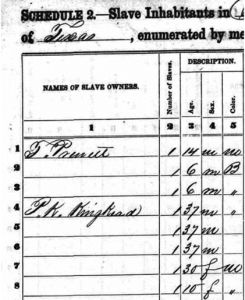 SCHEDULE 2.—Slave Inhabitants in
of Texas, enumerated by me
NAMES OF SLAVE OWNERS. Number of Slaves. DESCRIPTION.
Age. Sex. Color.
1 2 3 4 5
1 1 14 m
2 1 6 m B
3 1 6 m "
4 P. K. 1 37 m "
5 1 37 m
6 1 37 m
7 1 30 f
8 1 10 f "